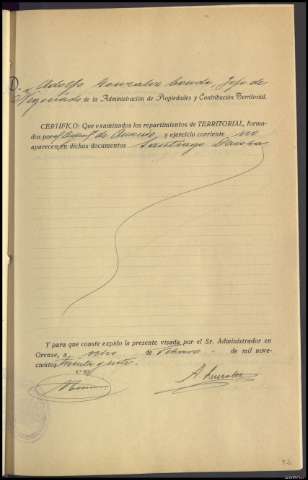 D. Adolfo Gonzalez Conde, Jefe de
Negociado de la Administración de Propiedades y Contribución Territorial.
CERTIFICO: Que examinados los repartimientos de TERRITORIAL, forma-
dos por el y ejercicio corriente, no
aparece en dichos documentos Santiago
Y para que conste expido la presente visada por el Sr. Administrador en
Orense, a de Febrero de mil nove-
cientos treinta y
A. Gonzalez